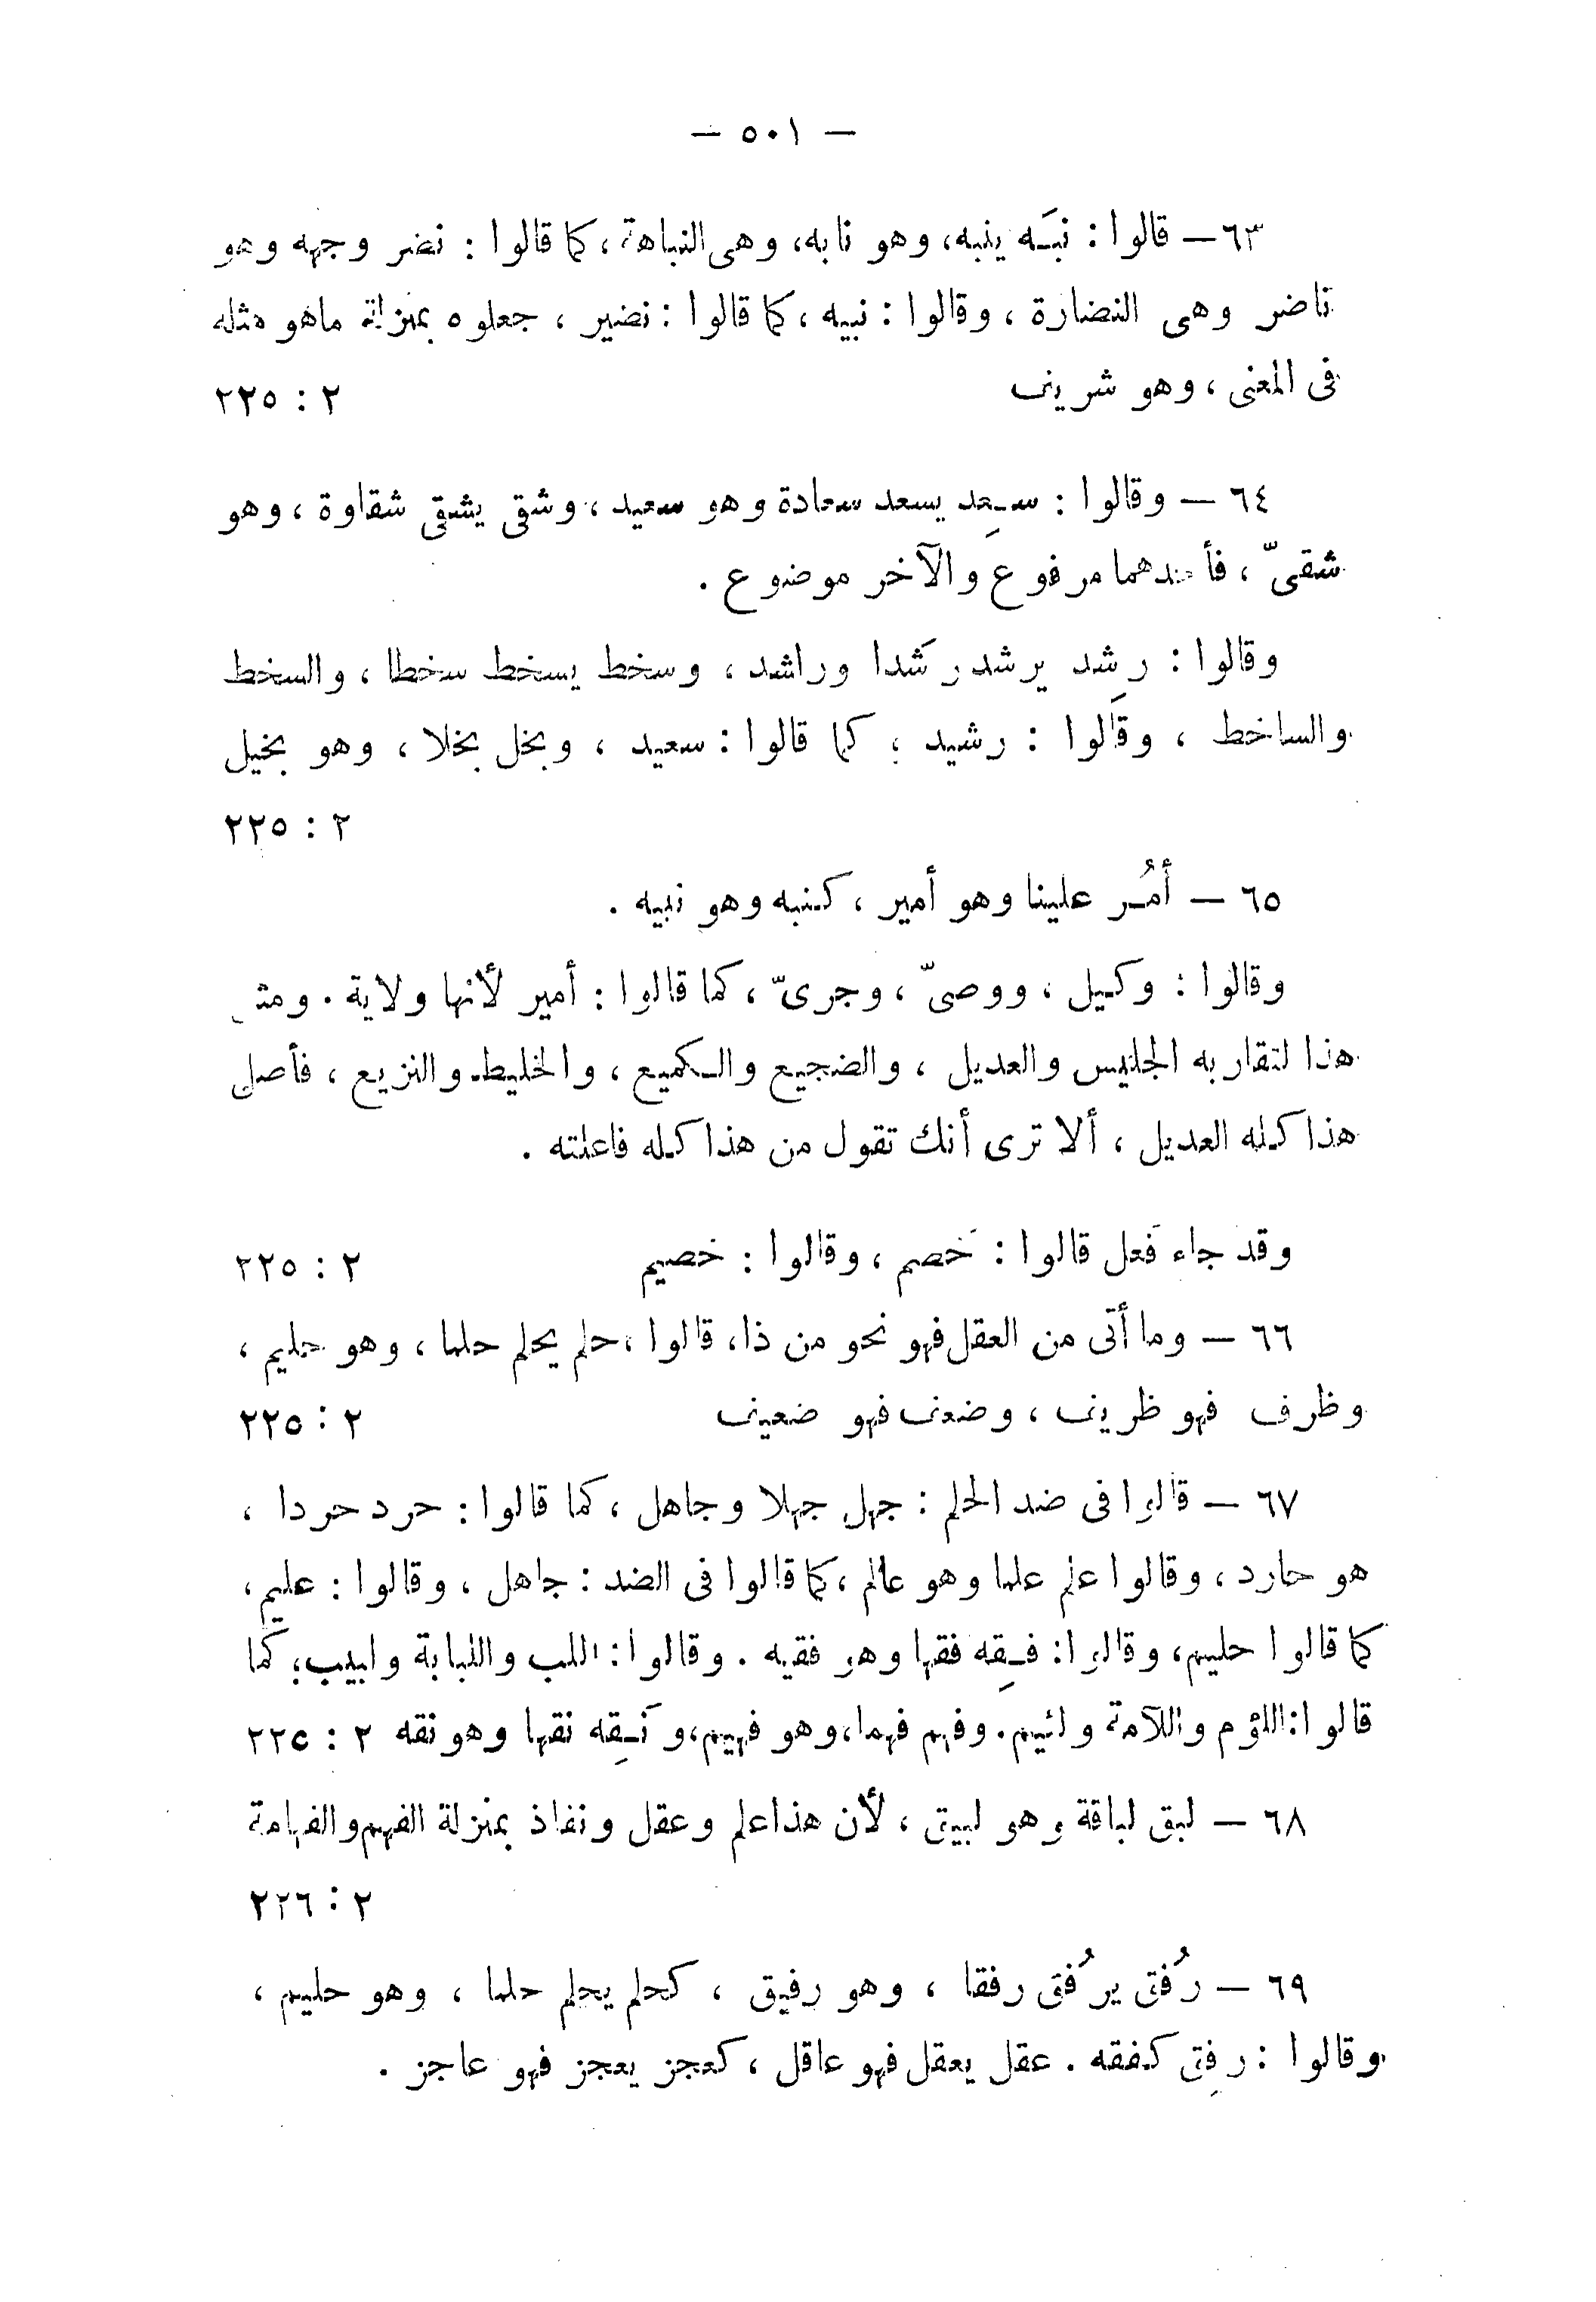 — ٥٠١ —
٦٣ — قالوا : نبَه ينبه، وهو نابه، وهى النباهة، كما قالوا : نضر وجهه وهو
ناضر وهى النضارة ، وقالوا : نبيه ، كما قالوا : نضير ، جعلوه بمنزلة ماهو مثله
فى المعنى ، وهو شريف ٢ : ٢٢٥
٦٤ — وقالوا : سعِد يسعد سعادة وهو سعيد ، وشقى يشقى شقاوة ، وهو
شقىّ ، فأحدهما مرفوع والآخر موضوع .
وقالوا : رشِد يرشد رشَدا وراشد ، وسخط يسخط سخطا ، والسخط
والساخط ، وقالوا : رشيد ، كما قالوا : سعيد ، وبخل بخلا ، وهو بخيل
٢ : ٢٢٥
٦٥ — أمُر علينا وهو أمير ، كنبه وهو نبيه .
وقالوا : وكيل ، ووصىّ ، وجرىّ ، كما قالوا : أمير لأنها ولاية . ومثـ
هذا لتقاربه الجليس والعديل ، والضجيع والكميع ، والخليط والنزيع ، فأصل
هذا كله العديل ، ألا ترى أنك تقول من هذا كله فاعلته .
وقد جاء فَعل قالوا : خَصم ، وقالوا : خصيم ٢ : ٢٢٥
٦٦ — وما أتى من العقل فهو نحو من ذا، قالوا ، حلم يحلم حلما ، وهو حليم ،
وظرف فهو ظريف ، وضعف فهو ضعيف ٢ : ٢٢٥
٦٧ — قالوا فى ضد الحلم : جهل جهلا وجاهل ، كما قالوا : حرد حردا ،
هو حارد ، وقالوا علم علما وهو عالم ، كما قالوا فى الضد : جاهل ، وقالوا : عليم ،
كما قالوا حليم، وقالوا: فقِه فقها وهو فقيه . وقالوا: اللب واللبابة ولبيب، كما
قالوا:اللؤم واللآمة ولئيم. وفهم فهما، وهو فهيم، ونَقِه نقها وهو نقه ٢ : ٢٢٥
٦٨ — لبق لباقة وهو لبيق ، لأن هذا علم وعقل ونفاذ بمنزلة الفهم والفهامة
٢ : ٢٢٦
٦٩ — رفُق يرفُق رفقا ، وهو رفيق ، كحلم يحلم حلما ، وهو حليم ،
وقالوا : رفِق كفقه . عقل يعقل فهو عاقل ، كعجز يعجز فهو عاجز .